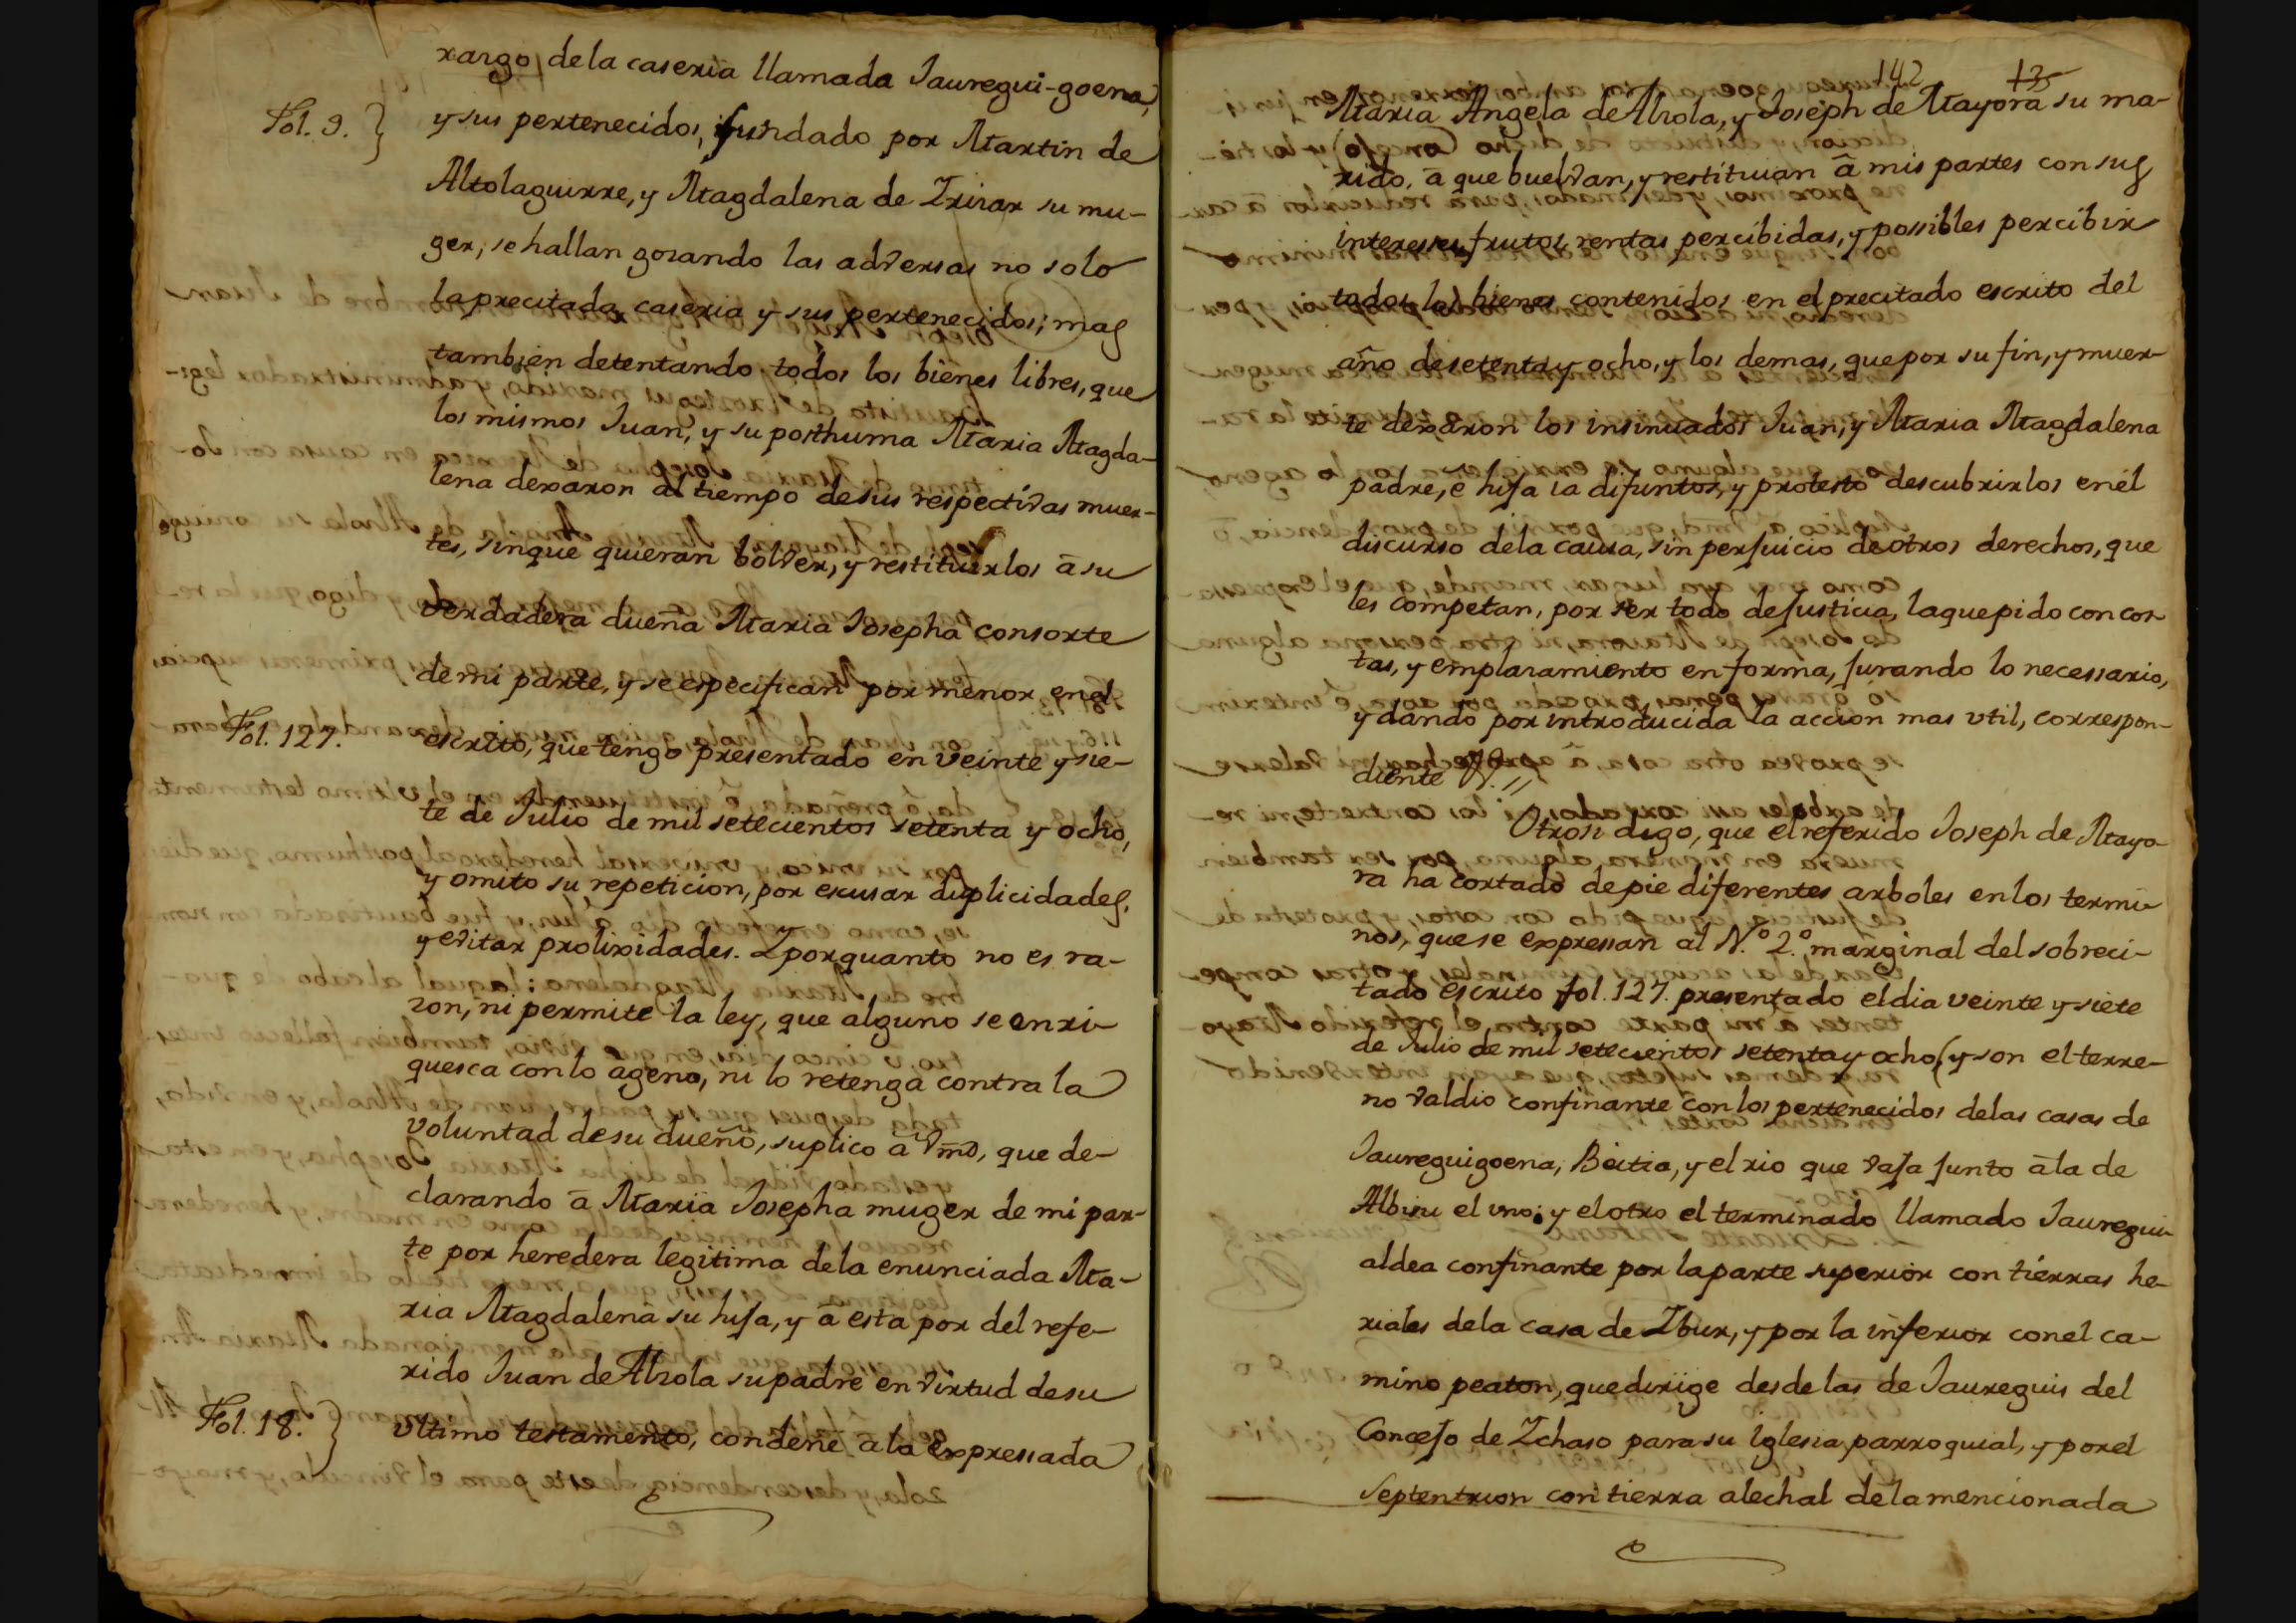 rargo, de la caseria llamada Jauregui-goena,
Fol. 9. }
y sus pertenecidos, fundado por Martin de
Altolaguirre, y Magdalena de Irizar su mu-
ger, se hallan gozando las adversas no solo
la precitada caseria y sus pertenecidos; mas
tambien detentando todos los bienes libres, que
los mismos Juan, y su posthuma Maria Magda-
lena dexaron al tiempo de sus respectivas muer-
tes, sin que quieran bolver, y restituirlos â su
verdadera dueña Maria Josepha consorte
de mi parte, y se especifican por menor en el
Fol. 127.
escrito, que tengo presentado en veinte y sie-
te de Julio de mil setecientos setenta y ocho,
y omito su repeticion, por escusar duplicidades,
y evitar prolixidades. Y porquanto no es ra-
zon, ni permite la ley, que alguno se enri-
quesca con lo ageno, ni lo retenga contra la
voluntad de su dueño, suplico â Vmd, que de-
clarando â Maria Josepha muger de mi par-
te por heredera legitima de la enunciada Ma-
ria Magdalena su hija, y â esta por del refe-
rido Juan de Alzola su padre en virtud de su
Fol. 18. }
ultimo testamento, condene a la expressada
142 125
Maria Angela de Alzola, y Joseph de Mayora su ma-
rido, â que buelvan, y restituian â mis partes con sus
interesses, frutos, rentas percibidas, y possibles percibir
todos los bienes contenidos en el precitado escrito del
año de setenta y ocho, y los demas, que por su fin, y muer-
te dexaron los insinuados Juan, y Maria Magdalena
padre, è hija ia difuntos, y protesto descubrirlos en el
discurso de la causa, sin perjuicio de otros derechos, que
les competan, por ser todo de Justicia, la que pido con cos-
tas, y emplazamiento en forma, jurando lo necessario,
y dando por introducida la accion mas util, correspon-
diente
Otrosi digo, que el referido Joseph de Mayo-
ra ha cortado de pie diferentes arboles en los termi-
nos, que se expressan al N.º 2.º marginal del sobreci-
tado escrito fol. 127. presentado el dia veinte y siete
de Julio de mil setecientos setenta y ocho, (y son el terre-
no valdio confinante con los pertenecidos de las casas de
Jaureguigoena, Beitia, y el rio que vaja junto â la de
Albisu el uno; y el otro el terminado llamado Jauregui-
aldea confinante por la parte superior con tierras he-
riales de la casa de Ibur, y por la inferior con el ca-
mino peaton, que dirige desde las de Jaureguis del
Concejo de Ichaso para su Iglesia parroquial, y por el
Septentrion con tierra alechal de la mencionada